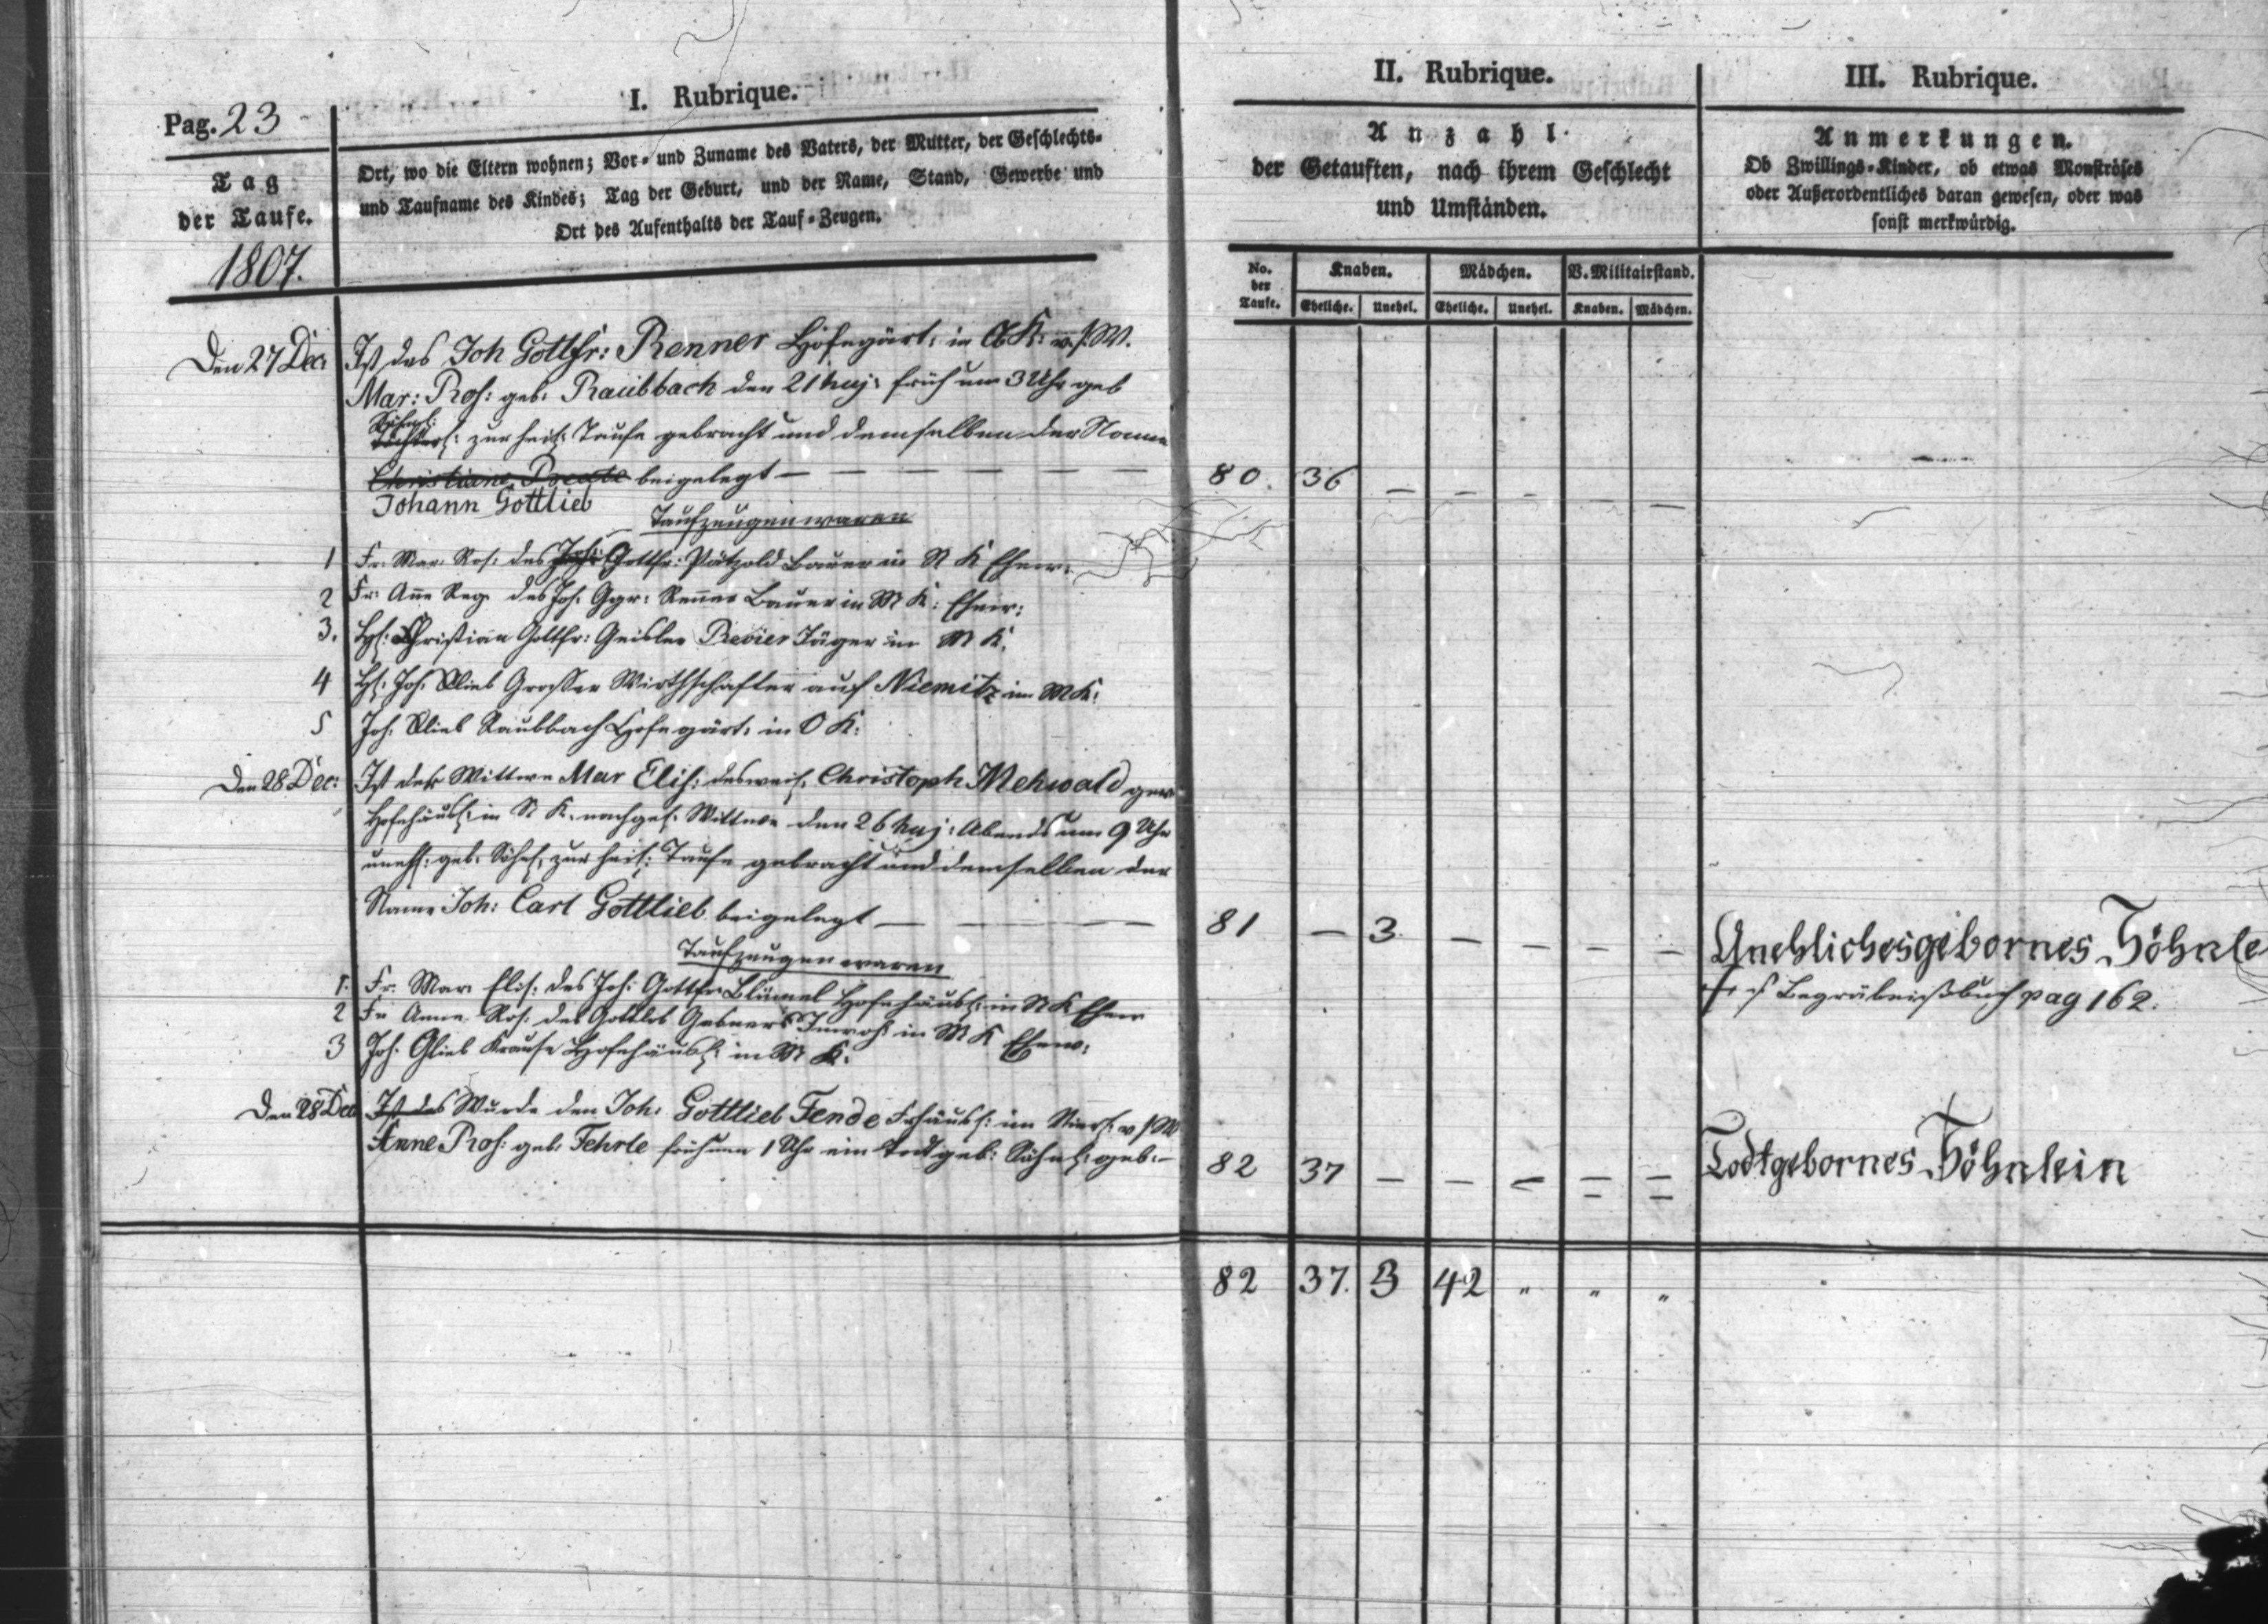 Pag. 23
I. Rubrique.
II. Rubrique.
III. Rubrique.
Tag
der Taufe.
1807.
Ort, wo die Eltern wohnen; Vor- und Zuname des Vaters, der Mutter, der Geschlechts-
und Taufname des Kindes; Tag der Geburt, und der Name, Stand, Gewerbe und
Ort des Aufenthalts der Tauf-Zeugen.
Anzahl
der Getauften, nach ihrem Geschlecht
und Umständen.
Anmerkungen.
Ob Zwillings-Kinder, ob etwas Monströses
oder Außerordentliches daran gewesen, oder was
sonst merkwürdig.
No. der Taufe.
Knaben.
Mädchen.
V. Militairstand.
Eheliche. Unehel. Eheliche. Unehel. Knaben. Mädchen.
Den 27 Dec: Ist das Joh Gottfr: Renner Hofegärt: in K: v. s. W.
Mar: Ros: geb: Raubbach den 21 huj: früh um 3 Uhr geb
Söhnl:
Töchterl: zur heil: Taufe gebracht und demselben der Name
Christiane beigelegt — — — — — —
80. 36 — — — — —
Johann Gottlieb
Taufzeugen waren
1 Fr. Mar. Ros: des Joh: Gottfr: Pätzold Bauer in N K Ehew:
2 Fr: Ane Reg. des Joh. Ggr: Renner Bauer in M K: Ehew:
3. Christian Gottfr: Geisler Revier Jäger in M K.
4 Joh. Glieb Grosser Wirthschafter auf Niemitz in M K:
5 Joh. Glieb Raubbach Hofegärt: in O K:
Den 28 Dec: Ist der Wittwe Mar Elis: des weil. Christoph Mehwald gew
Hofehäusl: in N K. nachgel. Wittwe den 26 huj: Abends um 9 Uhr
unehl: geb. Söhnl. zur heil: Taufe gebracht und demselben der
Name Joh: Carl Gottlieb beigelegt — — — —
81 — 3. — — — —
Unehlichesgebornes Söhnle
† s Begräbnißbuch pag 162.
Taufzeugen waren
1. Fr. Mar. Elis: des Joh: Gottfr Blümel Hofehäusl: in N K Ehew
2 Fr Anna Ros: des Gottlob Inwoh: in M K Ehew:
3 Joh. Glieb Krause Hofehäusl: in M K:
Den 28 Dec Ist des Wurde den Joh: Gottlieb Fende Frhäusl: im v s W
Anne Ros: geb: Fehrle früh um 1 Uhr ein todtgeb: Söhnl: geb: —
82 37 — — — — —
†
Todtgebornes Söhnlein
82 37. 3 42 " " "